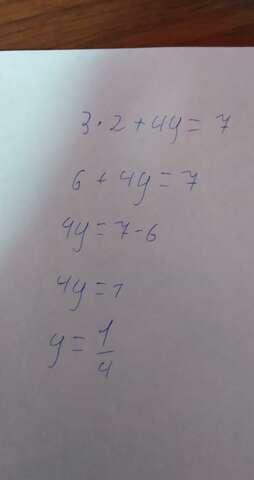 3·2+4y=7
6+4y=7
4y=7-6
4y=1
y=1/4